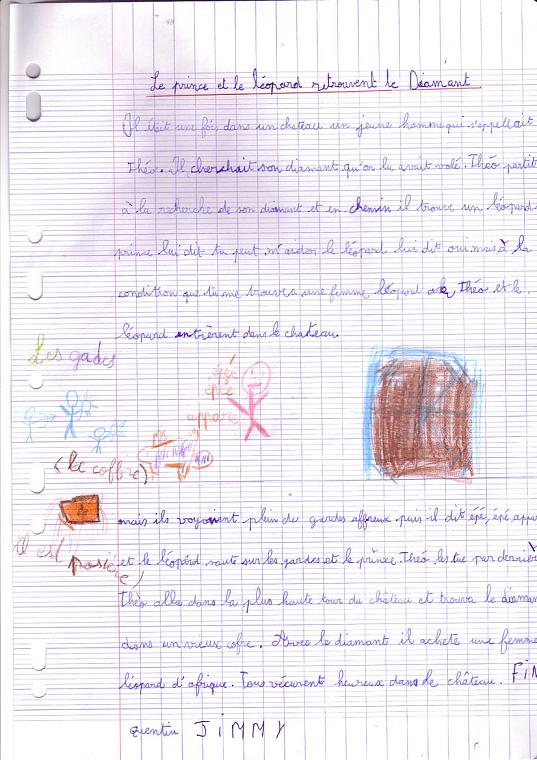 Le prince et le léopard retrouvent le Diamant
Il était une fois dans un chateau un jeune homme qui s'appellait
Théo. Il cherchait son diamant qu'on lu avait volé. Théo partit
à la recherche de son diamant et en chemin il trouve un léopard.
prince lui dit tu peut m'aider le léopard lui dit oui mais à la
condition que tu me trouves une femme léopard ok Théo et le
léopard entrèrent dans le chateau.
Les gades
épé
épée
appare
(le coffre)
mais ils voyaient plein de gardes affreux puis il dit épé, épé appar
il est
et le léopard saute sur les gardes et le prince Théo les tue par derrière
Théo alla dans la plus haute tour du château et trouva le diaman
dans un vieux cofre. Avec le diamant il achete une femme
léopard d'afrique. Tous vécurent heureux dans le château. FiN
quentin JiMMY